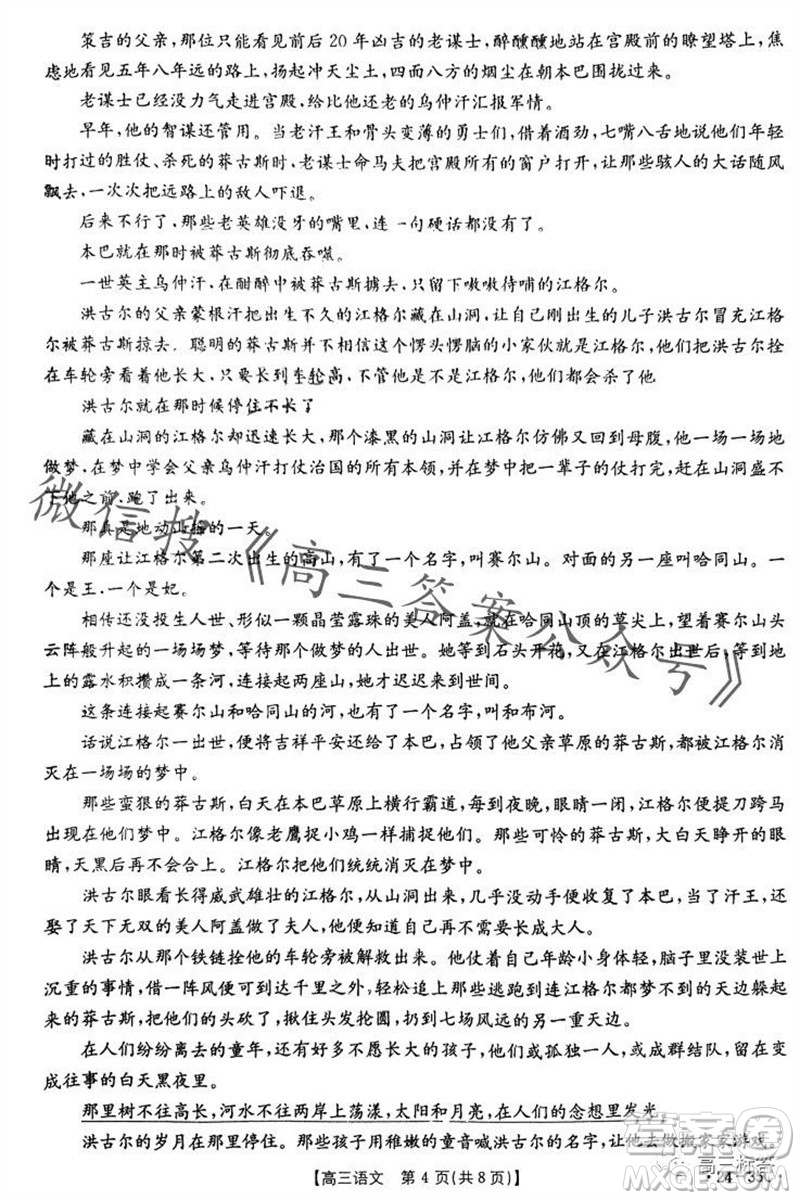 策吉的父亲，那位只能看见前后20年凶吉的老谋士，醉醺醺地站在宫殿前的瞭望塔上，焦
虑地看见五年八年远的路上，扬起冲天尘土，四面八方的烟尘在朝本巴围拢过来。
老谋士已经没力气走进宫殿，给比他还老的乌仲汗汇报军情。
早年，他的智谋还管用。当老汗王和骨头变薄的勇士们，借着酒劲，七嘴八舌地说他们年轻
时打过的胜仗、杀死的莽古斯时，老谋士命马夫把宫殿所有的窗户打开，让那些骇人的大话随风
飘去，一次次把远路上的敌人吓退。
后来不行了，那些老英雄没牙的嘴里，连一句硬话都没有。
本巴就在那时被莽古斯彻底吞噬。
一世英主乌仲汗，在酣醉中被莽古斯掳去，只留下嗷嗷待哺的江格尔。
洪古尔的父亲蒙根汗把出生不久的江格尔藏在山洞，让自己刚出生的儿子洪古尔冒充江格
尔被莽古斯掠去。聪明的莽古斯不相信这个愣头愣脑的小家伙就是江格尔，他们把洪古尔拴
在车轮旁看着他长大，只要长到车轮高，不管他是谁，都会杀了他。
洪古尔就在那时候停住不长了
藏在山洞的江格尔却迅速长大，那个漆黑的山洞让江格尔仿佛又回到母腹，他在那里没日没夜地
做梦，在梦中学会父亲乌仲汗打仗治国的所有本领，并在梦中把一辈子的仗打完，赶在山洞盛不
下他之前，跑了出来。
那真是地动山摇的一天。
那座让江格尔第二次出生的高山，有了一个名字，叫赛尔山。对面的另一座叫哈同山。一
个是王，一个是妃。
相传还没投生人世、形似一颗晶莹露珠的美人阿盖，就在哈同山顶的草尖上，望着赛尔山头
云阵般升起的一场场梦，等待那个做梦的人出世。她等到石头开花，又在江格尔出世后，等到山上
的露水积攒成一条河，连接起两座山，她才迟迟来到世间。
这条连接起赛尔山和哈同山的河，也有了一个名字，叫和布河。
话说江格尔一出世，便将吉祥平安还给了本巴，那些占领了他父亲草原的莽古斯，被江格尔消
灭在一场场的梦中。
那些蛮狠的莽古斯，白天在本巴草原上横行霸道，每到夜晚，眼睛一闭，江格尔便提刀跨马
出现在他们梦中。江格尔像老鹰捉小鸡一样捉住他们。那些可怜的莽古斯，大白天睁开的眼
睛，天黑后再不会合上。江格尔把他们统统消灭在梦中。
洪古尔眼看着长得威武雄壮的江格尔，从山洞走出来，几乎没动便收复了本巴，当了汗王，还
娶了天下无双的美人阿盖做了夫人。但他却不愿长成大人。
洪古尔从那个铁链拴他的车轮旁被解救出来。他仗着自己年龄小身体轻，脑子里没装世上
沉重的事情，借一阵风便可达到千里之外，轻松追上那些逃跑到连江格尔都梦不到的天边躲起
来的莽古斯，把他们的头砍了，揪住头发抡圆，扔到七场风远的另一重天边。
在人们纷纷离去的童年，有好多不愿长大的孩子，他们或孤独一人，或成群结队，存在变
成往事的白天黑夜里。
那里树不往高长，河水不往两岸上荡漾，太阳和月亮，在人们的念想里发光
洪古尔的岁月在那里停住。他时常用稚嫩的童音喊洪古尔的名字，让他去做搬家家游戏。
【高三语文 第4页(共8页)】
·24-350·
微信搜《高三答案公众号》
答案圈
MXQE.COM
高三标答